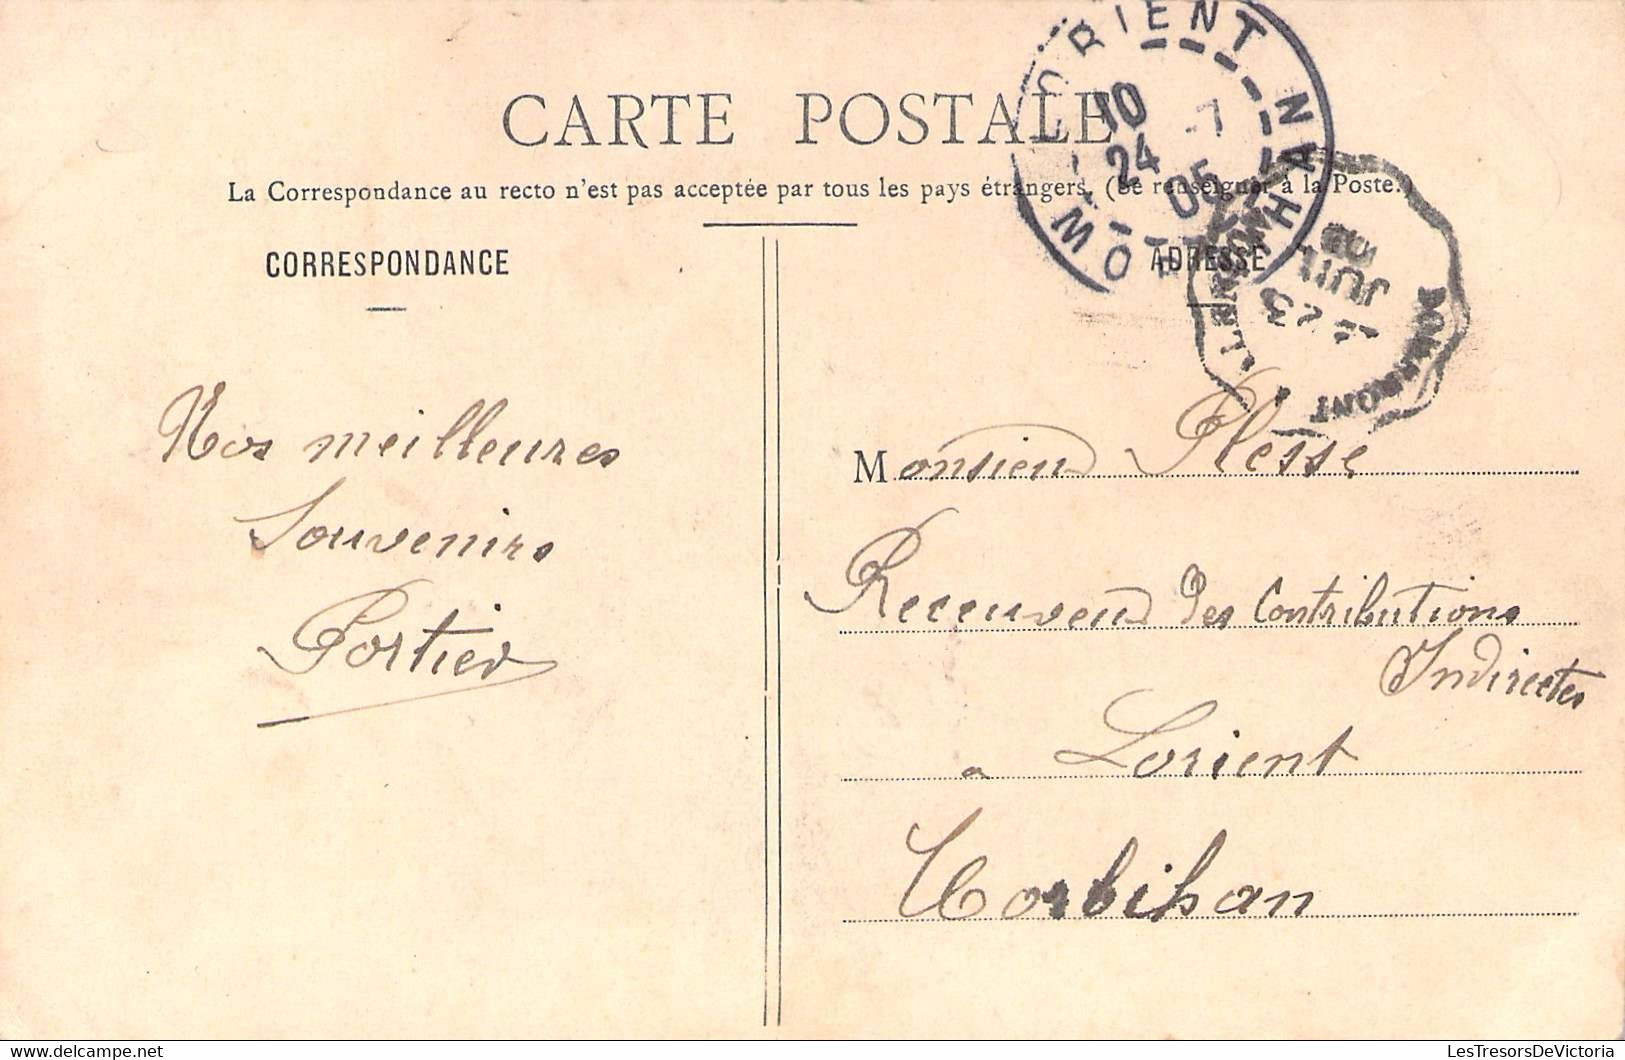 CARTE POSTALE
La Correspondance au recto n'est pas acceptée par tous les pays étrangers. (Se renseigner à la Poste.)
CORRESPONDANCE
ADRESSE
LORIENT MORBIHAN
10 24 -7 05
DOMFRONT
2 23 JUIL 05
Nos meilleures
Souvenirs
Portier
Monsieur Plesse
Receuveur des Contributions
Indirectes
a Lorient
Morbihan
www.delcampe.net
LesTresorsDeVictoria